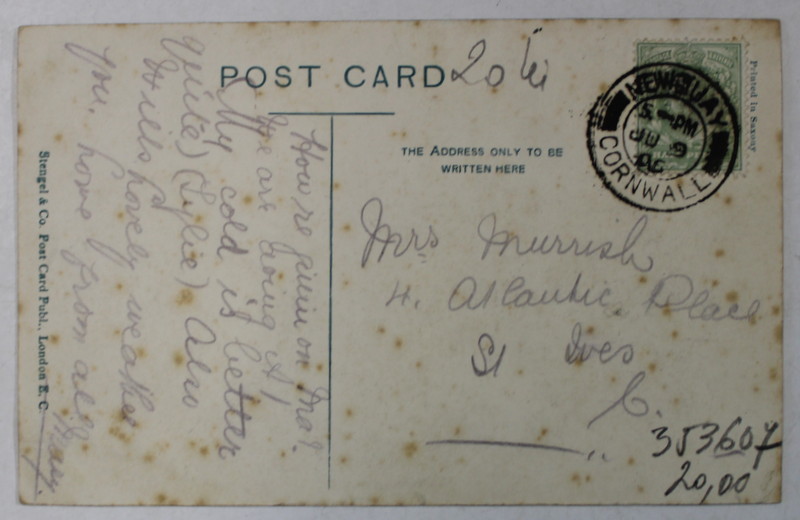 POST CARD
20
THE ADDRESS ONLY TO BE
WRITTEN HERE
NEWQUAY
5 - PM
JU 9
06
CORNWALL
Printed in Saxony
How're givin on Ma?.
We are doing A1
My cold is better
quite) (Lylie) Also
Wills lovely weather
you. love from all
May.
Mrs Murrish
4. Atlantic Place
St Ives
C.
353607
20,00
Stengel & Co. Post Card Publ., London E. C.